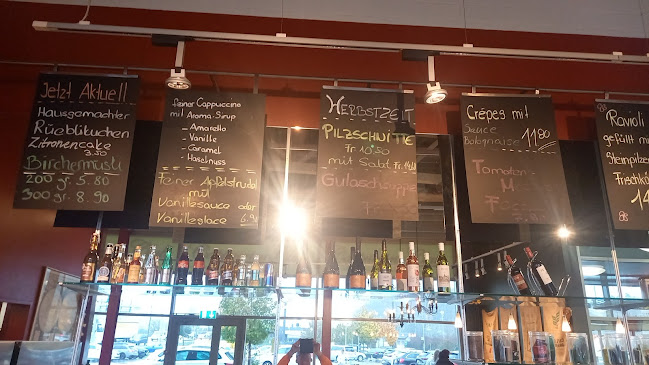 Jetzt Aktuell
Hausgemachter
Rüeblikuchen
Zitronencake
3.50
Birchermüsli
200 gr. 5.80
300 gr. 8.90
feiner Cappuccino
mit Aroma-Sirup
- Amaretto
- Vanille
- Caramel
- Haselnuss
Feiner Apfelstrudel
mit
Vanillesauce oder
Vanilleglace
HERBSTZEIT
PILZSCHNITTE
Fr 10.50
mit Salat Fr
Gulaschsuppe
Crêpes mit
Sauce
bolognaise 11.80
Tomaten-
Ravioli
gefüllt mit
Steinpilzen